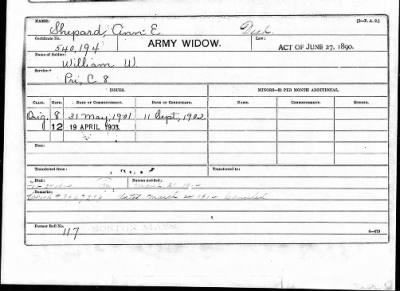 NAME: [3—P. A. G.]
Shepard, Ann E.
Certificate No. Law:
540,194 ARMY WIDOW. ACT OF JUNE 27, 1890.
Name of Soldier:
William W
Service:
Pri, C 8
ISSUES. MINORS—$2 PER MONTH ADDITIONAL.
CLASS. RATE. DATE OF CERTIFICATE. DATE OF COMMENCEMENT. NAME. COMMENCEMENT. ENDING.
Orig. 8 31 May, 1901 11 Sept, 1902
12 19 APRIL 1908
Transferred from: Transferred to:
Died:
Remarks:
March
Former Roll No.
117 BOSTON MASS.